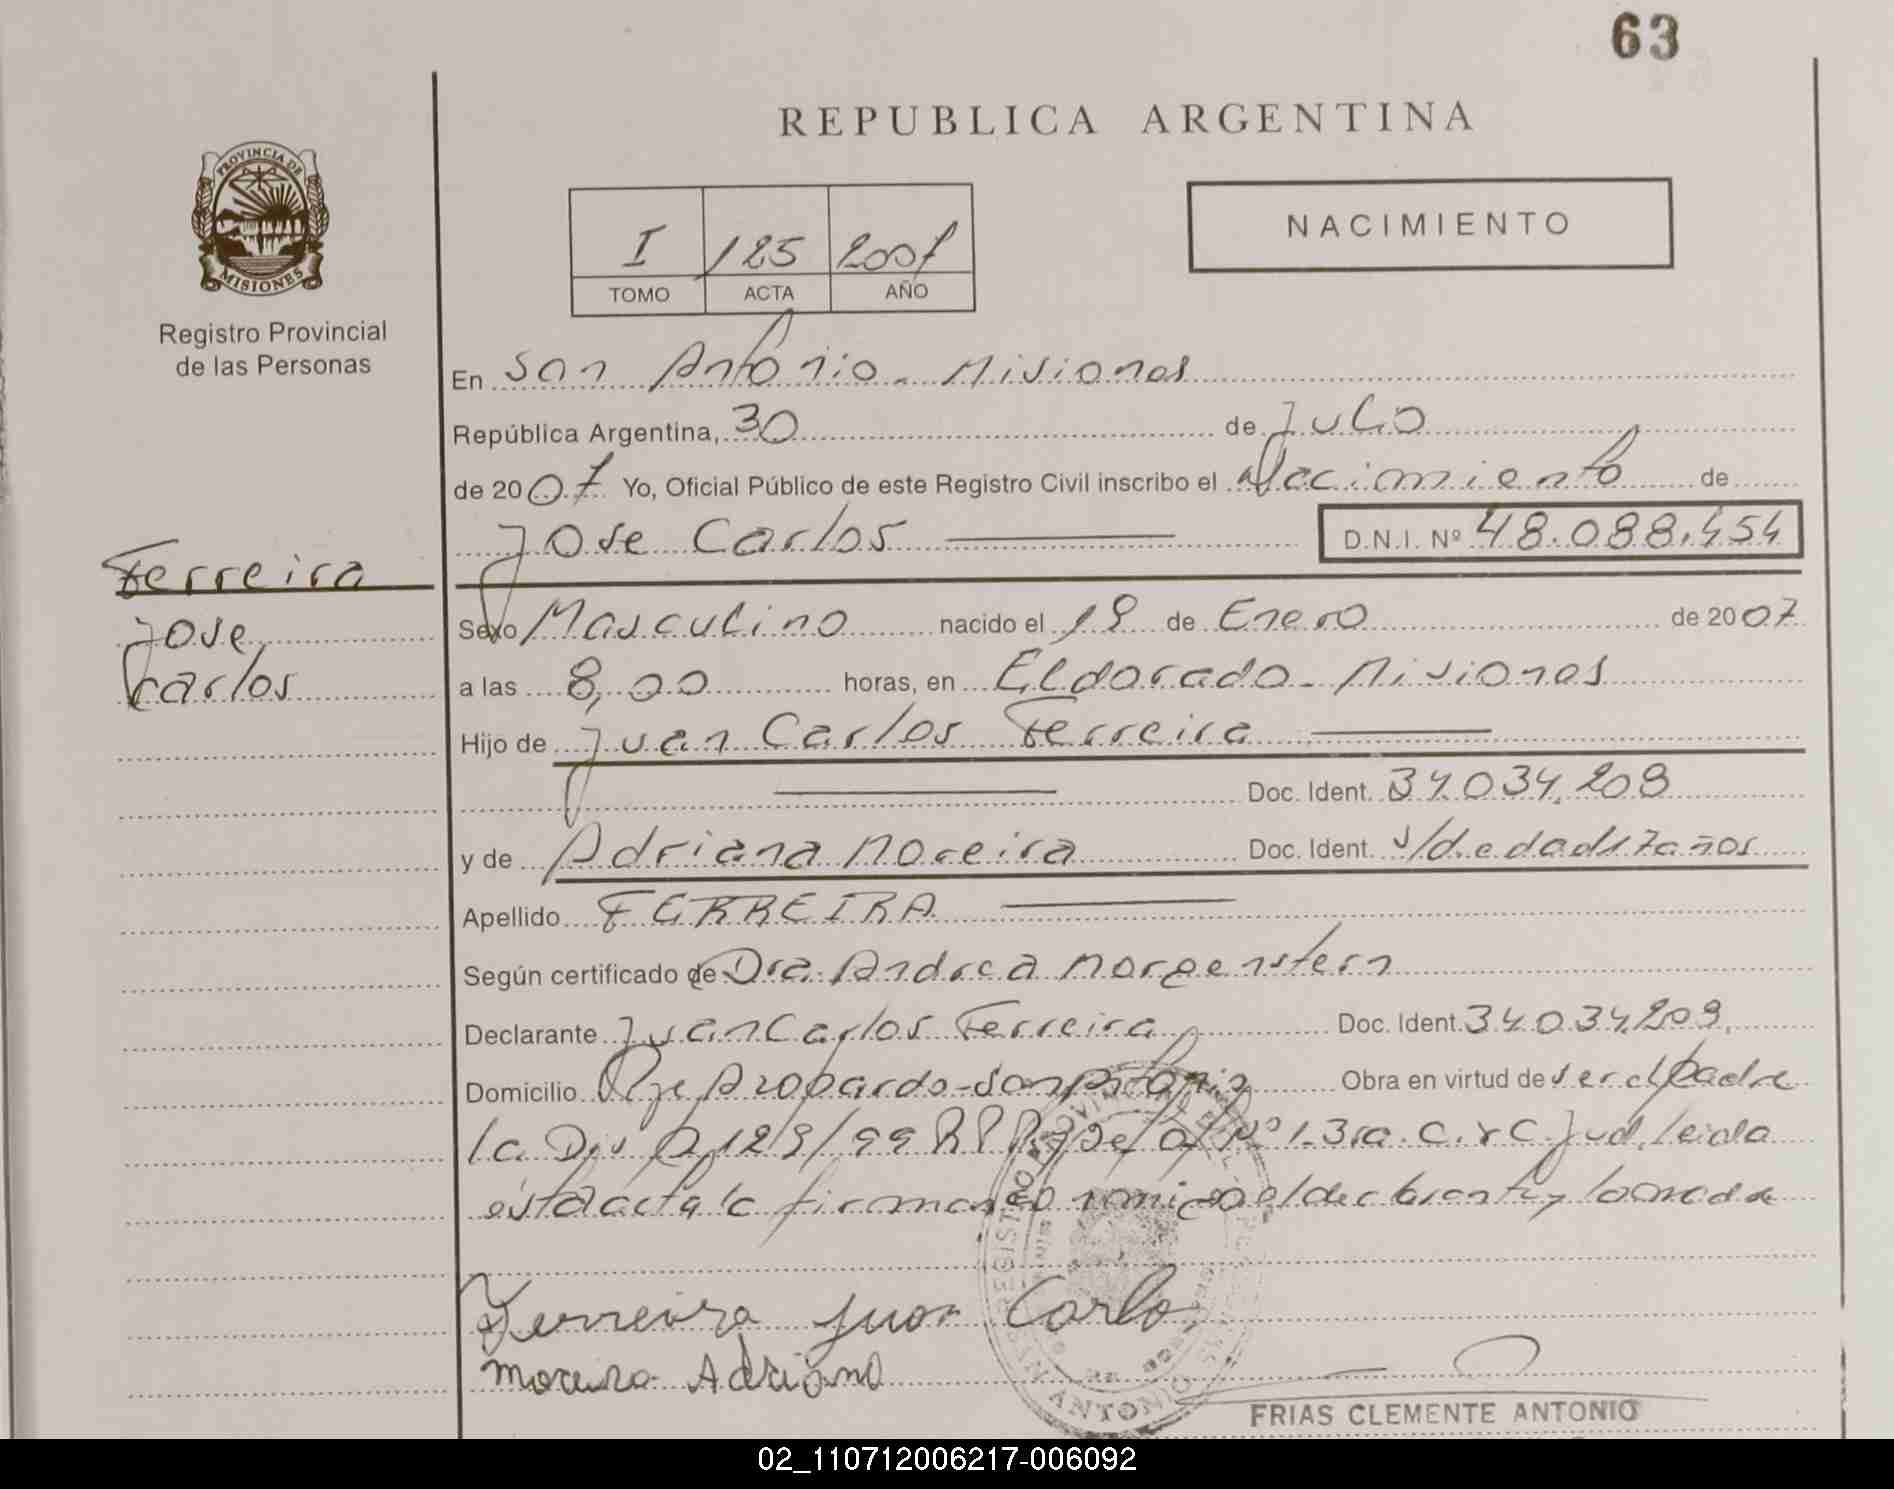 63
REPUBLICA ARGENTINA
PROVINCIA DE
MISIONES
Registro Provincial
de las Personas
I 125 2007
TOMO ACTA AÑO
NACIMIENTO
En San Antonio - Misiones
República Argentina, 30 de Julio
de 2007 Yo, Oficial Público de este Registro Civil inscribo el Nacimiento de
Jose Carlos D.N.I. Nº 48.088.454
Ferreira
Jose
Carlos
Sexo Masculino nacido el 19 de Enero de 2007
a las 8,00 horas, en Eldorado - Misiones
Hijo de Juan Carlos Ferreira
Doc. Ident. 34.034.209
y de Adriana Moreira Doc. Ident. s/d.edad 17 años
Apellido FERREIRA
Según certificado de Dra. Andrea Morgenstern
Declarante Juan Carlos Ferreira Doc. Ident. 34.034.209
Domicilio Pje Azopardo - San Antonio Obra en virtud de ser el padre
la Dis 129/99 Nº 1-3ra. C. Jud. leida
esta acta la firman conmigo el declarante y la madre
Ferreira Juan Carlos
Moreira Adriana
SAN ANTONIO
FRIAS CLEMENTE ANTONIO
02_110712006217-006092